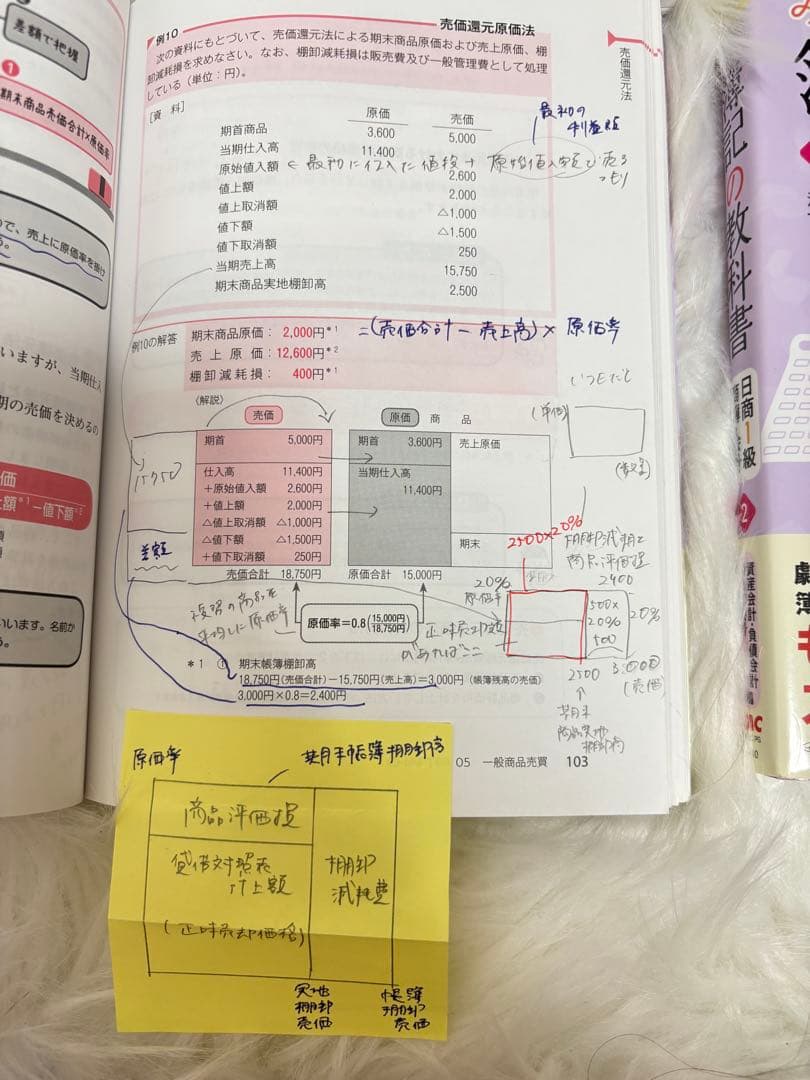 差額で把握
❶
期末商品売価合計×原価率
ので、売上に原価率を掛け
る。
いますが、当期仕入
期の売価を決めるの
価
上額*¹－値下額*²
いいます。名前か
う。
例10
売価還元原価法
次の資料にもとづいて、売価還元法による期末商品原価および売上原価、棚
卸減耗損を求めなさい。なお、棚卸減耗損は販売費及び一般管理費として処理
している（単位：円）。
[資　料]
原価　売価
最初の
利益額
期首商品　3,600　5,000
当期仕入高　11,400
原始値入額　2,600
←最初に仕入た値段＋原始値入額で売る
つもり
値上額　2,000
値上取消額　△1,000
値下額　△1,500
値下取消額　250
当期売上高　15,750
期末商品実地棚卸高　2,500
例10の解答
期末商品原価：2,000円*¹
＝(売価合計－売上高)×原価率
売上原価：12,600円*²
棚卸減耗損：400円*¹
〈解説〉
売価
原価　商品
期首　5,000円
仕入高　11,400円
＋原始値入額　2,600円
＋値上額　2,000円
△値上取消額　△1,000円
△値下額　△1,500円
＋値下取消額　250円
売価合計　18,750円
期首　3,600円
当期仕入高
11,400円
原価合計　15,000円
売上原価
期末
15750
差額
いつもだと
(単価)
(数量)
2500×20%
棚卸減耗と
商品評価損
20%
原価率
2400
500×
20%
500
20%
2500
3,000
(売価)
↑
期末
商品実地
棚卸高
複数の商品を
平均した原価率
原価率＝0.8(15,000円/18,750円)
正味売却価額
があればここ
＊1　①　期末帳簿棚卸高
18,750円(売価合計)－15,750円(売上高)＝3,000円（帳簿残高の売価）
3,000円×0.8＝2,400円
05　一般商品売買　103
売価還元法
原価率
期末帳簿棚卸高
商品評価損
貸借対照表
計上額
(正味売却価格)
棚卸
減耗費
実地
棚卸
売価
帳簿
棚卸
売価
簿記の教科書
日商1級
2
資産会計・負債会計